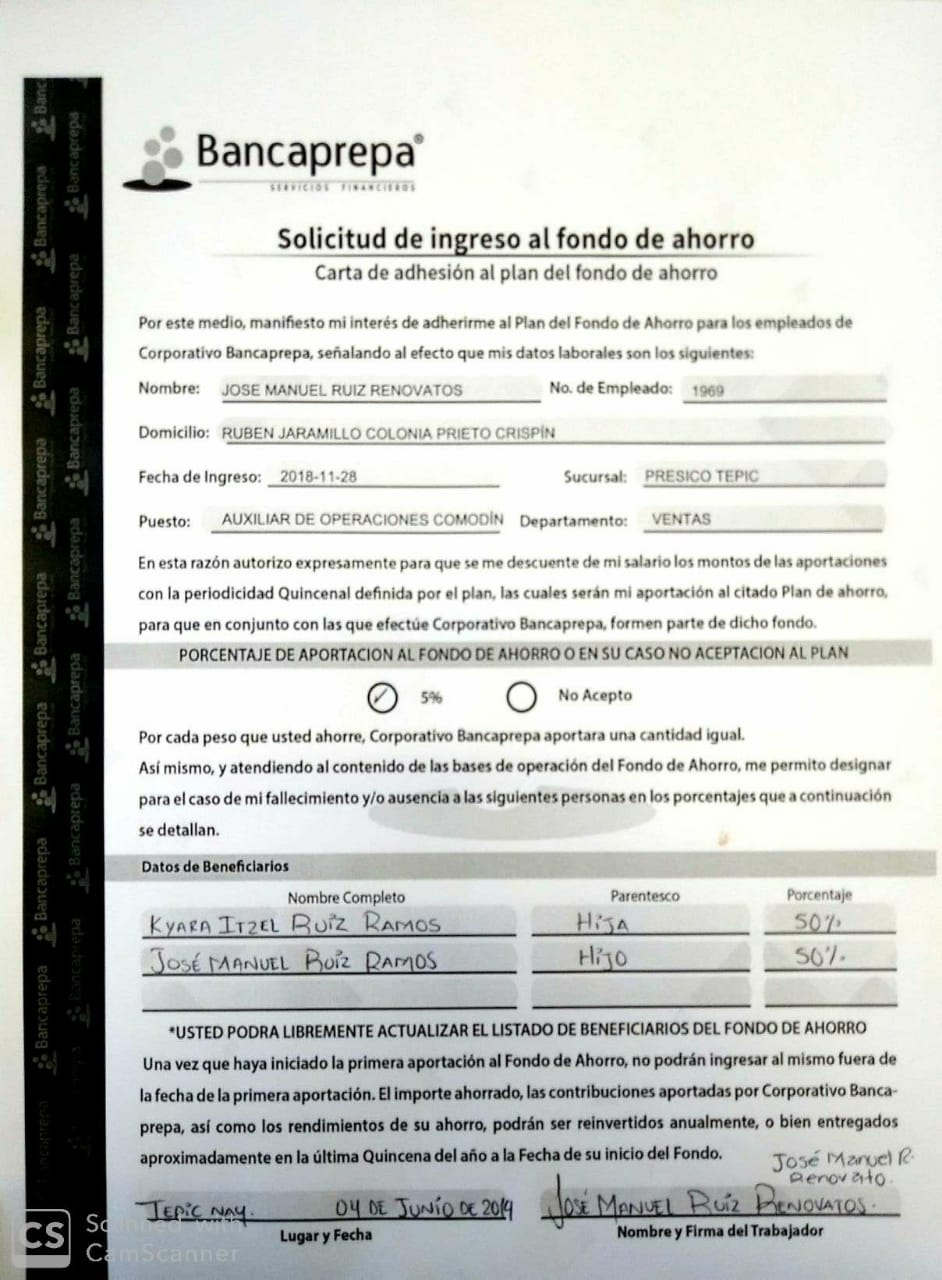 Bancaprepa®
SERVICIOS FINANCIEROS
Solicitud de ingreso al fondo de ahorro
Carta de adhesión al plan del fondo de ahorro
Por este medio, manifiesto mi interés de adherirme al Plan del Fondo de Ahorro para los empleados de
Corporativo Bancaprepa, señalando al efecto que mis datos laborales son los siguientes:
Nombre: JOSE MANUEL RUIZ RENOVATOS No. de Empleado: 1969
Domicilio: RUBEN JARAMILLO COLONIA PRIETO CRISPÍN
Fecha de Ingreso: 2018-11-28 Sucursal: PRESICO TEPIC
Puesto: AUXILIAR DE OPERACIONES COMODÍN Departamento: VENTAS
En esta razón autorizo expresamente para que se me descuente de mi salario los montos de las aportaciones
con la periodicidad Quincenal definida por el plan, las cuales serán mi aportación al citado Plan de ahorro,
para que en conjunto con las que efectúe Corporativo Bancaprepa, formen parte de dicho fondo.
PORCENTAJE DE APORTACION AL FONDO DE AHORRO O EN SU CASO NO ACEPTACION AL PLAN
5% No Acepto
Por cada peso que usted ahorre, Corporativo Bancaprepa aportara una cantidad igual.
Así mismo, y atendiendo al contenido de las bases de operación del Fondo de Ahorro, me permito designar
para el caso de mi fallecimiento y/o ausencia a las siguientes personas en los porcentajes que a continuación
se detallan.
Datos de Beneficiarios
Nombre Completo Parentesco Porcentaje
KYARA ITZEL RUÍZ RAMOS HIJA 50%
JOSÉ MANUEL RUÍZ RAMOS HIJO 50%
*USTED PODRA LIBREMENTE ACTUALIZAR EL LISTADO DE BENEFICIARIOS DEL FONDO DE AHORRO
Una vez que haya iniciado la primera aportación al Fondo de Ahorro, no podrán ingresar al mismo fuera de
la fecha de la primera aportación. El importe ahorrado, las contribuciones aportadas por Corporativo Banca-
prepa, así como los rendimientos de su ahorro, podrán ser reinvertidos anualmente, o bien entregados
aproximadamente en la última Quincena del año a la Fecha de su inicio del Fondo.
José Manuel R.
Renovato.
TEPIC NAY. 04 DE JUNIO DE 2019 JOSÉ MANUEL RUÍZ RENOVATOS.
Lugar y Fecha Nombre y Firma del Trabajador
CS Scanned with
CamScanner